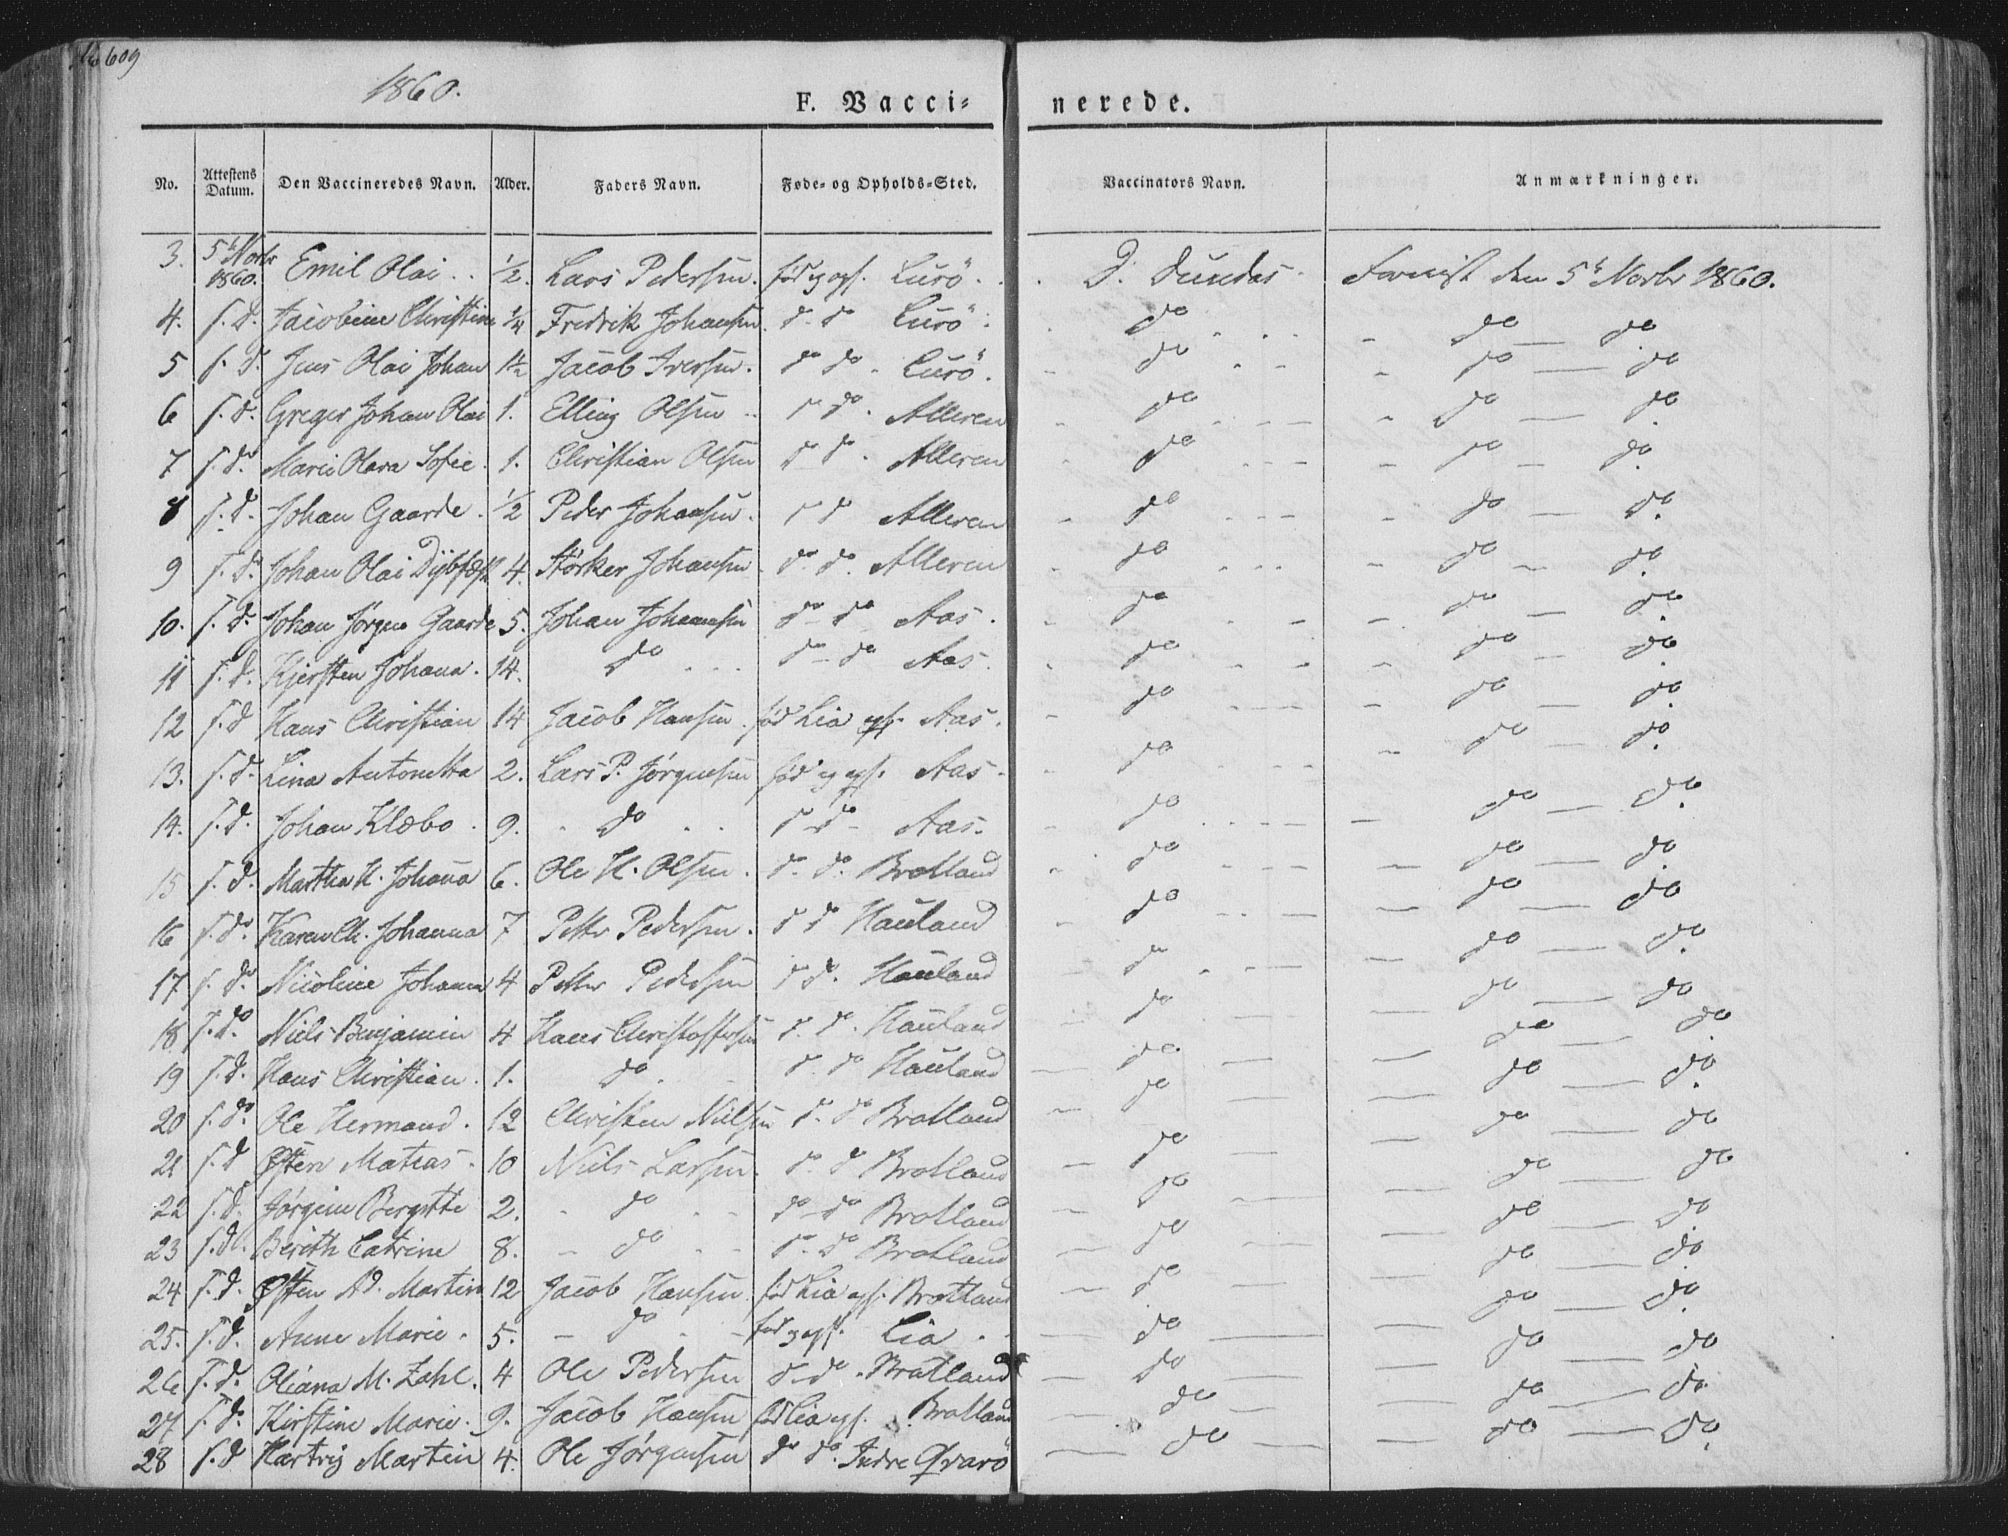 609
1860.
F. Vacci- nerede.
No. Attestens Datum. Den Vaccineredes Navn. Alder. Faders Navn. Føde- og Opholds-Sted. Vaccinators Navn. Anmærkninger.
3. 5t Novbr 1860. Emil Olai . . ½. Lars Pedersen. fød og ops. Lurö. D. Dundas Forevist den 5t Novbr 1860.
4. s. d. Jacobine Christine ¼ Fredrik Johansen. do do Lurö. do do — do
5 s. d. Jens Olai Johan 1½ Jacob Iversen. do do. Lurö. do do — do
6 s. d. Greger Johan Olai 1. Elling Olsen do do. Alleren do do — do
7 s. do. Marie Olava Sofie. 1. Christian Olsen do do. Alleren do do — do
8 s. d. Johan Gaarde. ½ Peder Johansen. do do Alleren do do — do
9 s. d. Johan Olai Dijbfest 4. Størker Johansen do. do. Alleren do do — do
10. s. d. Johan Jørgen Gaarde 5. Johan Johansen do do Aas. do do — do
11 s. d. Kjersten Johana. 14. do do do Aas. do do — do
12 s. d Hans Christian 14 Jacob Hansen. fød Lia ops. Aas. do do — do
13. s. d. Lina Antonetta 2. Lars P. Jørgensen fød og ops. Aas. do do — do
14. s. d. Johan Klæbo. 9. do do do Aas. do do — do
15 s. d. Martha H. Johana 6. Ole H. Olsen. do. do. Bratland do do — do
16 s. do. Karen Ch. Johanna 7 Petter Pedersen. do do Hauland do do — do
17 s. do. Nicoline Johanna 4 Petter Pedersen do do. Hauland do do — do
18 s. do. Niels Benjamin 4 Hans Christoffersen do. do. Hauland do do — do
19 s. d. Hans Christian. 1. do do. do Hauland do do — do
20 s. do. Ole Hermand. 12 Christen Nielsen do. do Bratland do do — do
21 s. d Østen Matias. 10 Niels Larsen. do. do Bratland do do — do
22 s. d. Jørgine Bergitte 2. do do do Bratland do do — do
23 s. d. Berith Catrine 8. do do. do Bratland do do — do
24 s. d. Østen Ad. Martin 12 Jacob Hansen. fød Lia ops. Bratland do do — do
25. s. d. Anne Marie. 5. do fød og ops. Lia. do do — do
26 s. d. Oliana M. Zahl. 4 Ole Pedersen do do. Bratland do do — do
27 s. d. Kirstine Marie. 9. Jacob Hansen fød Lia ops. Bratland do do — do
28 s. d Hartvig Martin 4. Ole Jørgensen do do. Indre Qvarö do do — do